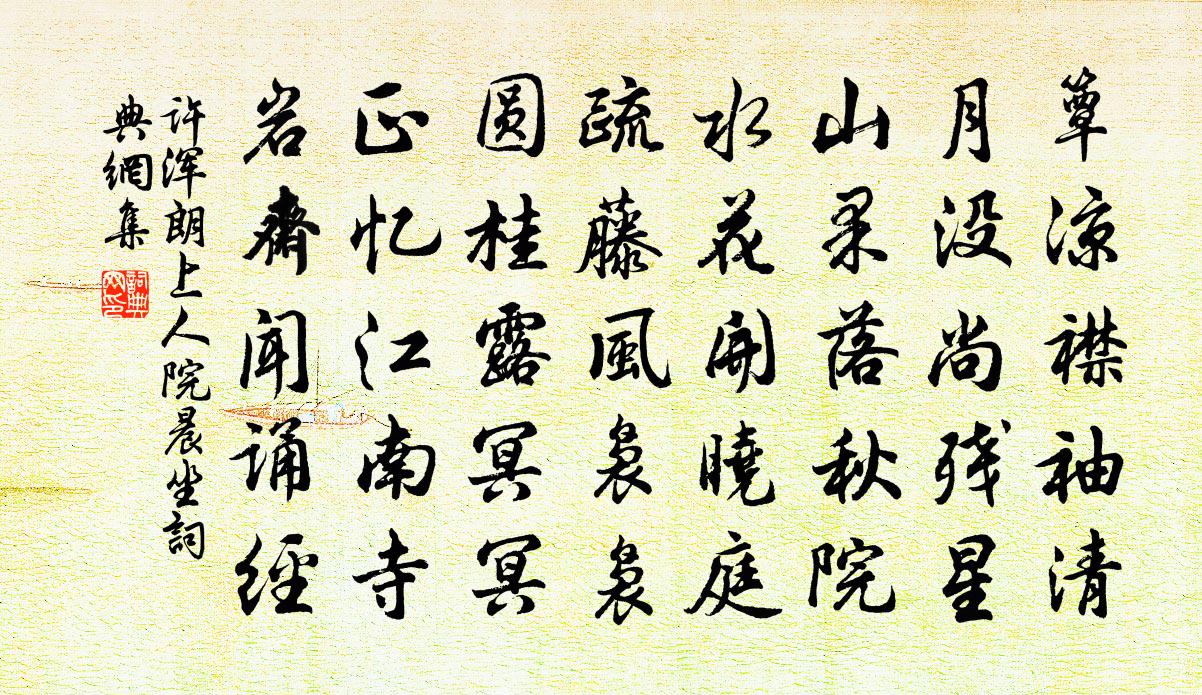 簟凉襟袖清
月没尚残星
山果落秋院
水花開曉庭
疏藤風裊裊
圆桂露冥冥
正忆江南寺
岩齋闻诵經
许浑朗上人院晨坐詞
典網集
詞典網印